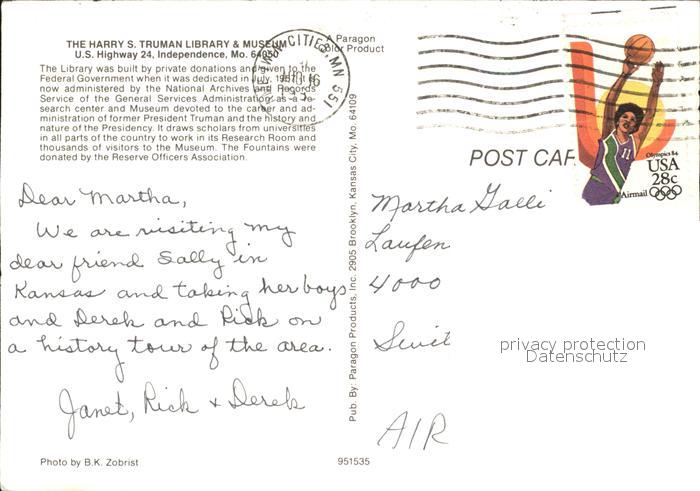 THE HARRY S. TRUMAN LIBRARY & MUSEUM
U.S. Highway 24, Independence, Mo. 64050
The Library was built by private donations and given to the
Federal Government when it was dedicated in July, 1957. It is
now administered by the National Archives and Records
Service of the General Services Administration as a re-
search center and Museum devoted to the career and ad-
ministration of former President Truman and the history and
nature of the Presidency. It draws scholars from universities
in all parts of the country to work in its Research Room and
thousands of visitors to the Museum. The Fountains were
donated by the Reserve Officers Association.
A Paragon
Color Product
CITIES, MN 551
Dear Martha,
We are visiting my
dear friend Sally in
Kansas and taking her boys
and Derek and Rick on
a history tour of the area.
Janet, Rick & Derek
Photo by B.K. Zobrist
951535
Pub. By: Paragon Products, Inc. 2905 Brooklyn, Kansas City, Mo. 64109
POST CAR
Olympics 84
USA
28c
Airmail
11
Martha Galli
Laufen
4000
Swit
AIR
privacy protection
Datenschutz